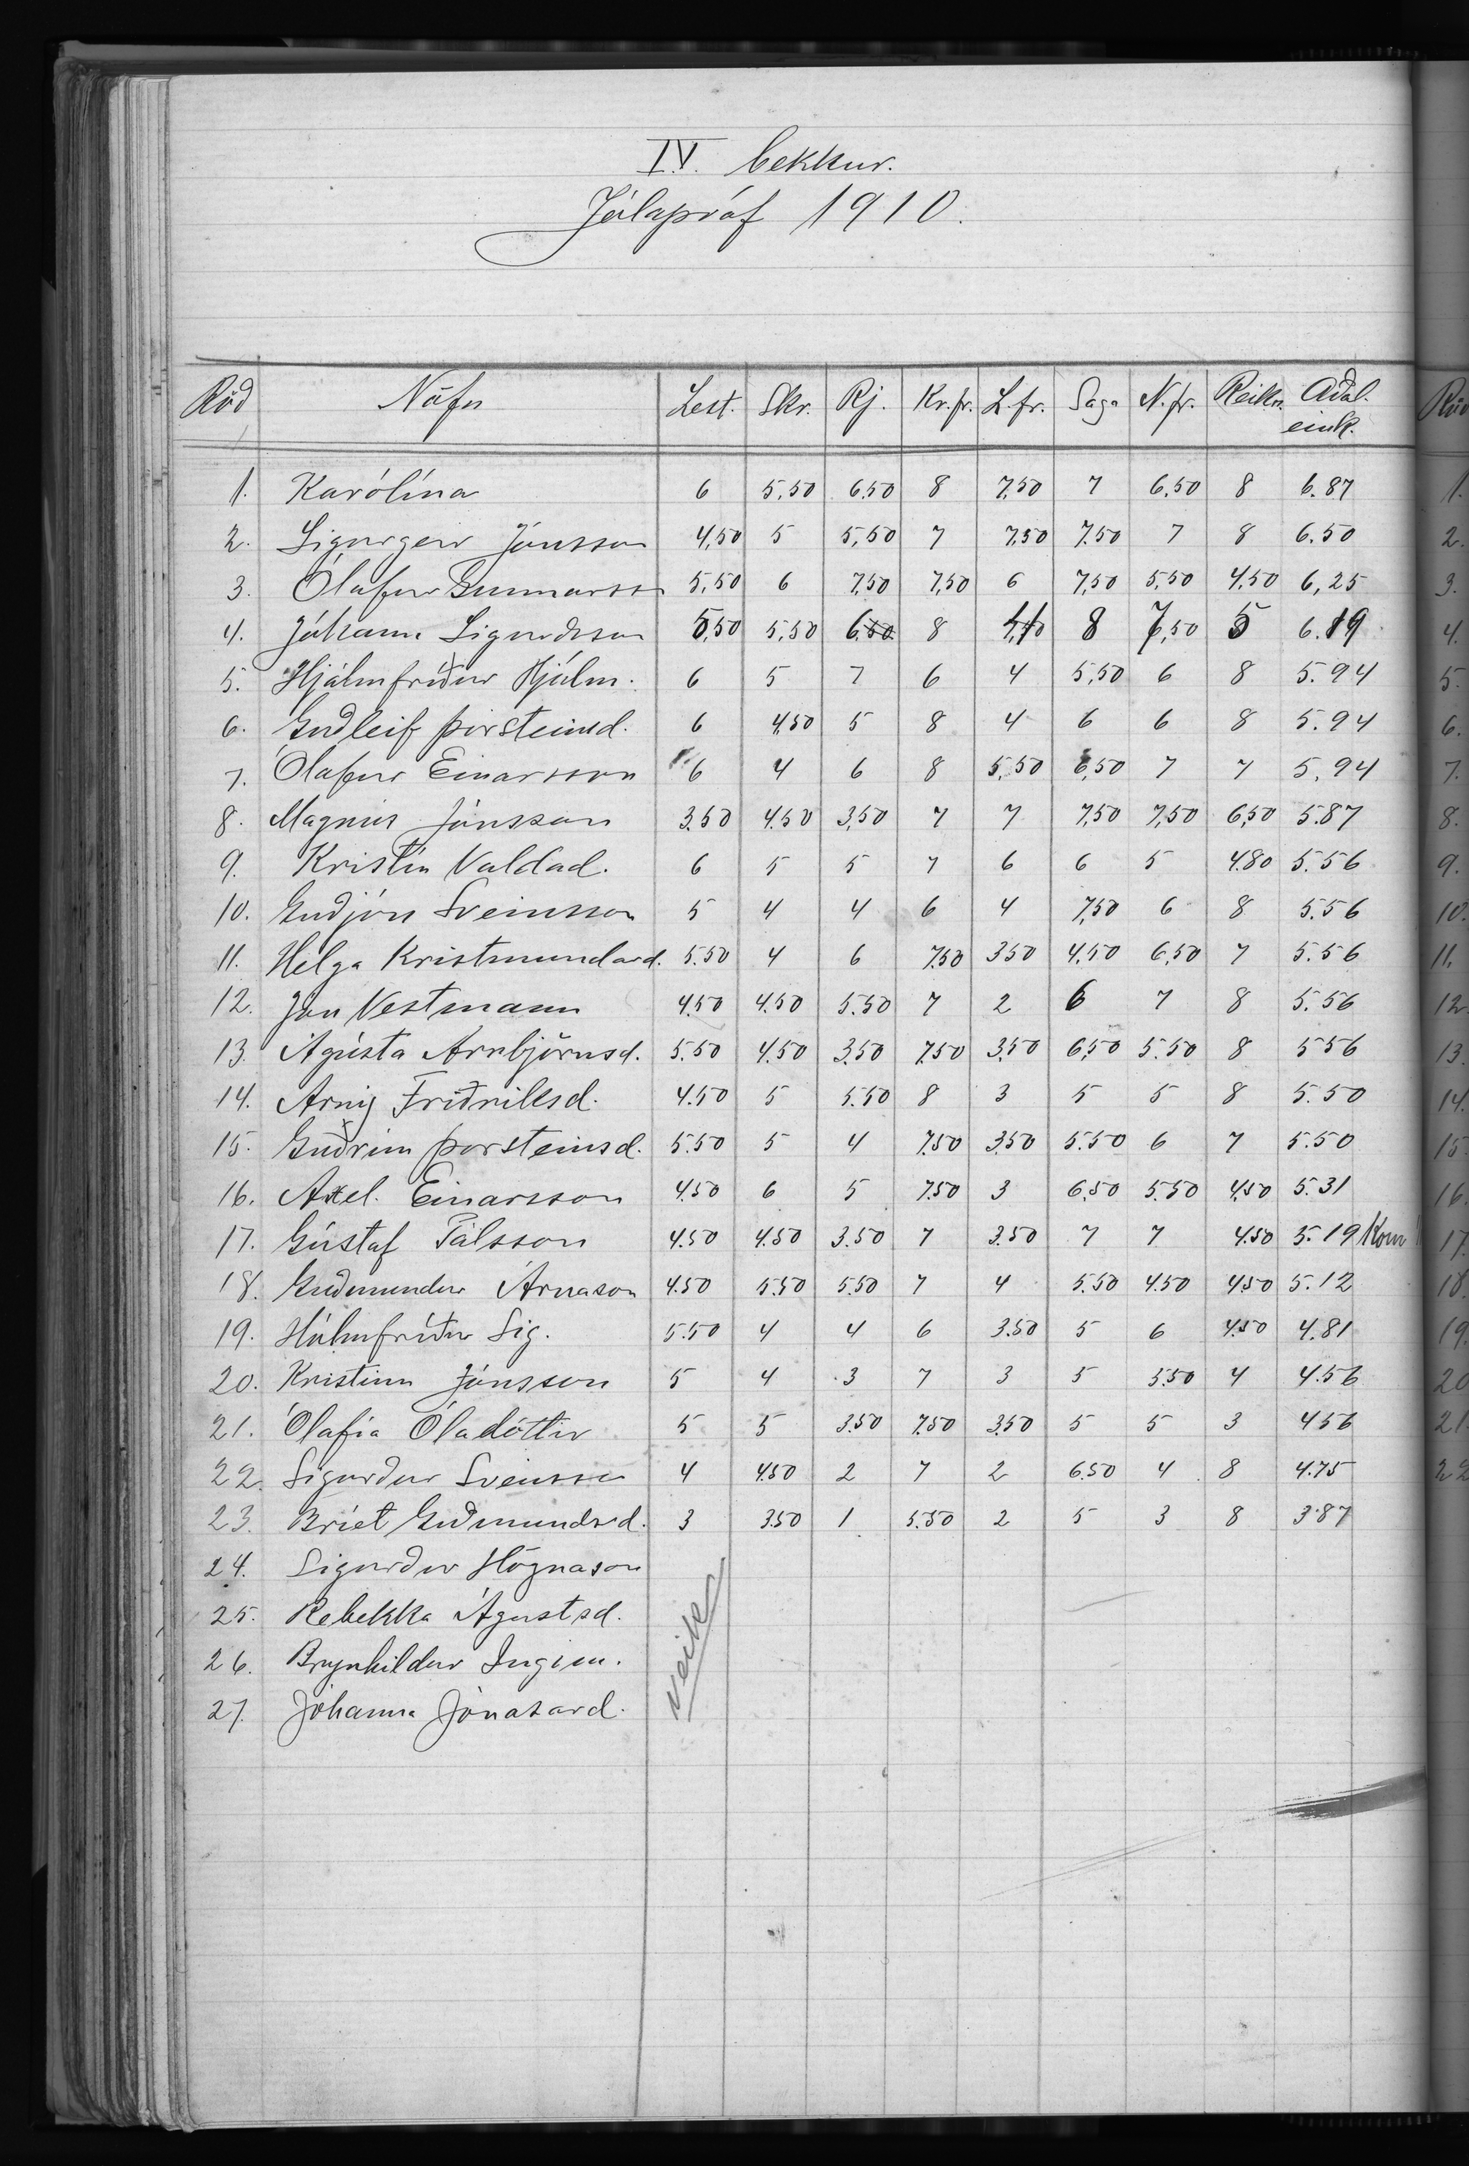 IV. bekkur.
Jólapróf 1910.
Röð Nöfn Lest. Skr. Rj. Kr.fr. L.fr. Saga N.fr. Reikn. Aðal.
eink.
1. Karólína 6 5,50 6,50 8 7,50 7 6,50 8 6.87
2. Sigurgeir Jónsson 4,50 5 5,50 7 7,50 7.50 7 8 6.50
3. Ólafur Gunnarss 5,50 6 7,50 7,50 6 7,50 5,50 4,50 6,25
4. Jóhann Sigurdsson 5,50 5,50 8 8 5 6.19
5. Hjálmfríður Hjálm. 6 5 7 6 4 5,50 6 8 5.94
6. Guðleif Þorsteinsd. 6 4,50 5 8 4 6 6 8 5.94
7. Ólafur Einarsson 6 4 6 8 5,50 6,50 7 7 5,94
8. Magnús Jónsson 3.50 4.50 3,50 7 7 7,50 7,50 6,50 5.87
9. Kristín Valdad. 6 5 5 7 6 6 5 4.80 5.56
10. Guðjón Sveinsson 5 4 4 6 4 7,50 6 8 5.56
11. Helga Kristmundard. 5.50 4 6 7.50 3.50 4,50 6,50 7 5.56
12. Jón Vestmann 4.50 4.50 5.50 7 2 6 7 8 5.56
13. Ágústa Arnbjörnsd. 5.50 4.50 3,50 7,50 3,50 6,50 5.50 8 5 56
14. Árný Friðriksd. 4.50 5 5.50 8 3 5 5 8 5.50
15. Guðrún Þorsteinsd. 5.50 5 4 7.50 3.50 5.50 6 7 5.50
16. Axel. Einarsson 4.50 6 5 7.50 3 6.50 5.50 4,50 5.31
17. Gústaf Pálsson 4.50 4.50 3.50 7 3.50 7 7 4.50 5.19 Kom
18. Guðmundur Árnason 4.50 5.50 5.50 7 4 5.50 4.50 4.50 5.12
19. Hólmfríður Sig. 5.50 4 4 6 3.50 5 6 4.50 4.81
20. Kristinn Jónsson 5 4 3 7 3 5 5.50 4 4.56
21. Ólafía Óladóttir 5 5 3.50 7.50 3.50 5 5 3 4 56
22. Sigurður Sveinsso 4 4.50 2 7 2 6.50 4 8 4.75
23. Bríet Guðmundsd. 3 3.50 1 5.50 2 5 3 8 3.87
24. Sigurður Högnason
25. Rebekka Ágústsd.
26. Brynhildur Ingim.
27. Jóhanna Jónasard.
veik